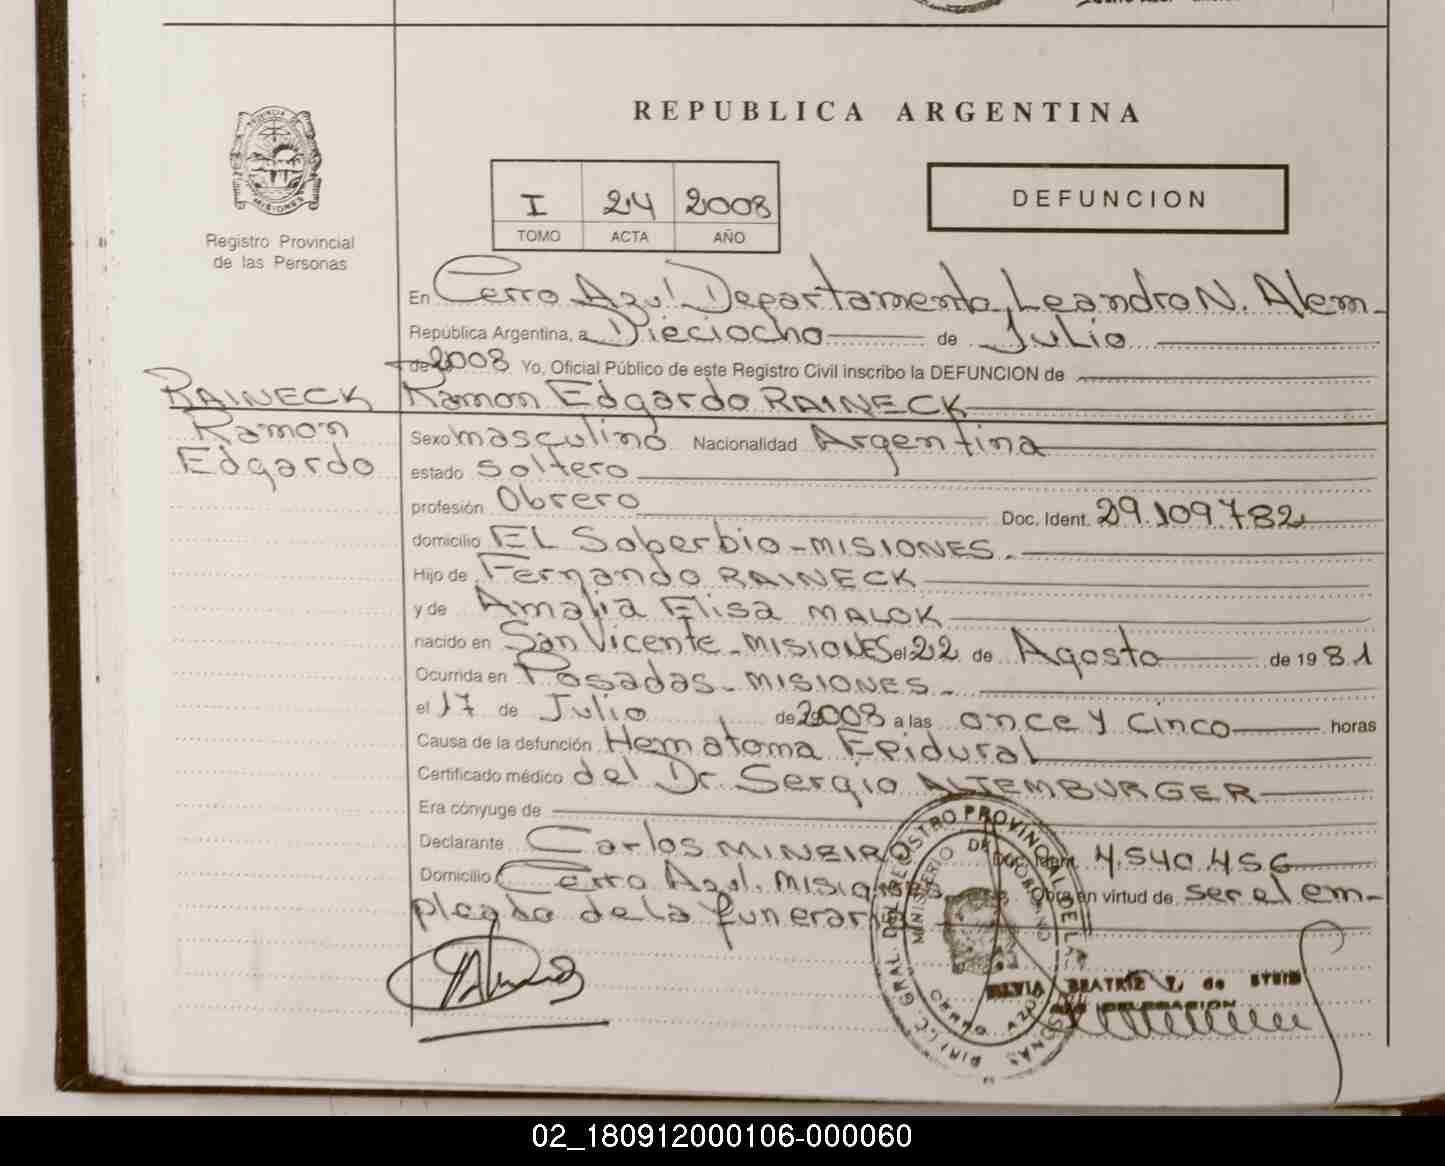 REPUBLICA ARGENTINA
Registro Provincial
de las Personas
I 24 2008
TOMO ACTA AÑO
DEFUNCION
En Cerro Azul Departamento Leandro N. Alem-
República Argentina, a Dieciocho de Julio
de 2008 Yo, Oficial Público de este Registro Civil inscribo la DEFUNCION de
RAINECK
Ramon
Edgardo
Ramon Edgardo RAINECK
Sexo masculino Nacionalidad Argentina
estado soltero
profesión Obrero Doc. Ident. 29.109.782
domicilio EL Soberbio-MISIONES.
Hijo de Fernando RAINECK
y de Amalia Elisa MALOK
nacido en San Vicente-MISIONES el 22 de Agosto de 1981
Ocurrida en Posadas-MISIONES-
el 17 de Julio de 2008 a las once y cinco horas
Causa de la defunción Hematoma Epidural
Certificado médico del Dr. Sergio ALTEMBURGER
Era cónyuge de
Declarante Carlos MINEIRO Doc. Ident. 4.540.456
Domicilio Cerro Azul. Misiones Obra en virtud de ser el em-
pleado de la funeraria
BEATRIZ
02_180912000106-000060